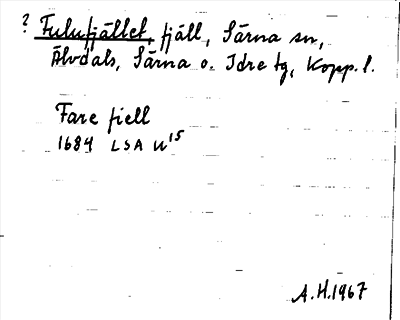 ? Fulufjället, fjäll, Särna sn,
Älvdals, Särna o. Idre tg, Kopp. l.
Fare fiell
1684 LSA U15
A.H.1967